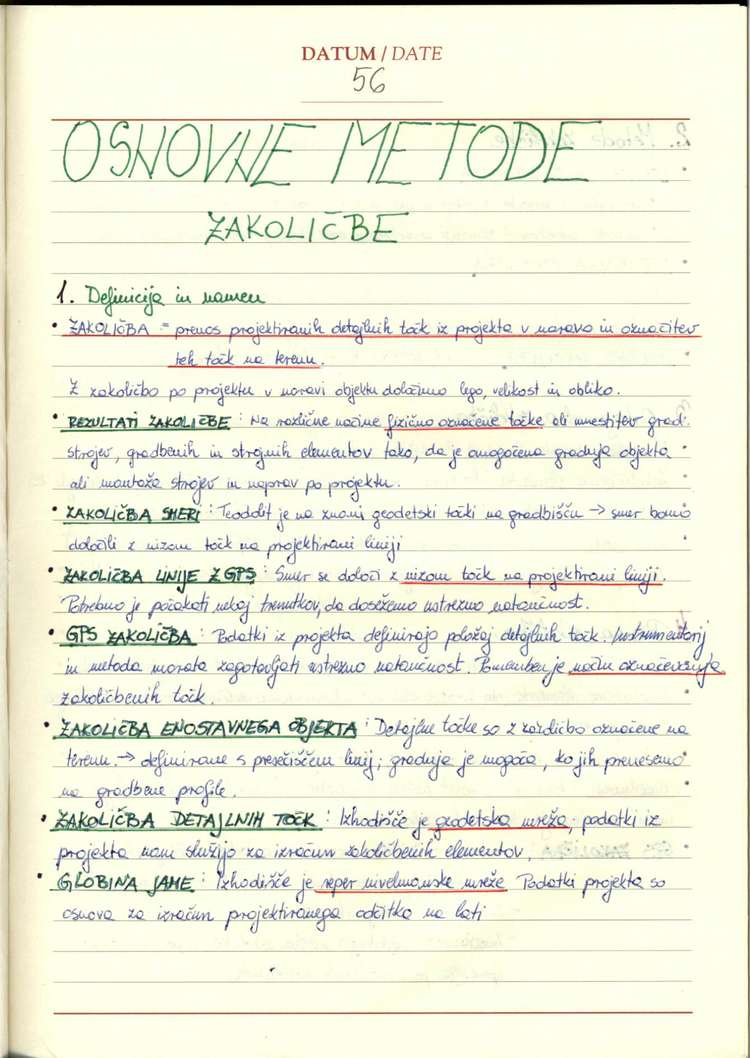 DATUM / DATE
56
OSNOVNE METODE
ZAKOLIČBE
1. Definicija in namen
• ZAKOLIČBA = prenos projektiranih detajlnih točk iz projekta v naravo in označitev
teh točk na terenu.
Z zakoličbo po projektu v naravi objektu določimo lego, velikost in obliko.
• REZULTATI ZAKOLIČBE : Na različne načine fizično označene točke ali umestitev grad.
strojev, gradbenih in strojnih elementov tako, da je omogočena gradnja objekta
ali montaža strojev in naprav po projektu.
• ZAKOLIČBA SMERI : Teodolit je na znani geodetski točki na gradbišču → smer bomo
določili z nizom točk na projektirani liniji
• ZAKOLIČBA LINIJE Z GPS : Smer se določi z nizom točk na projektirani liniji.
Potrebno je počakati nekaj trenutkov, da dosežemo ustrezno natančnost.
• GPS ZAKOLIČBA : Podatki iz projekta definirajo položaj detajlnih točk. Instrumentarij
in metoda morata zagotavljati ustrezno natančnost. Pomemben je način označevanja
zakoličbenih točk.
• ZAKOLIČBA ENOSTAVNEGA OBJEKTA : Detajlne točke so z označene na
terenu. → definirane s presečiščem linij; gradnja je mogoča, ko jih prenesemo
na gradbene profile.
• ZAKOLIČBA DETAJLNIH TOČK : Izhodišče je geodetska mreža, podatki iz
projekta nam služijo za izračun zakoličbenih elementov.
• GLOBINA JAME : Izhodišče je reper nivelmanske mreže. Podatki projekta so
osnova za izračun projektiranega odčitka na lati